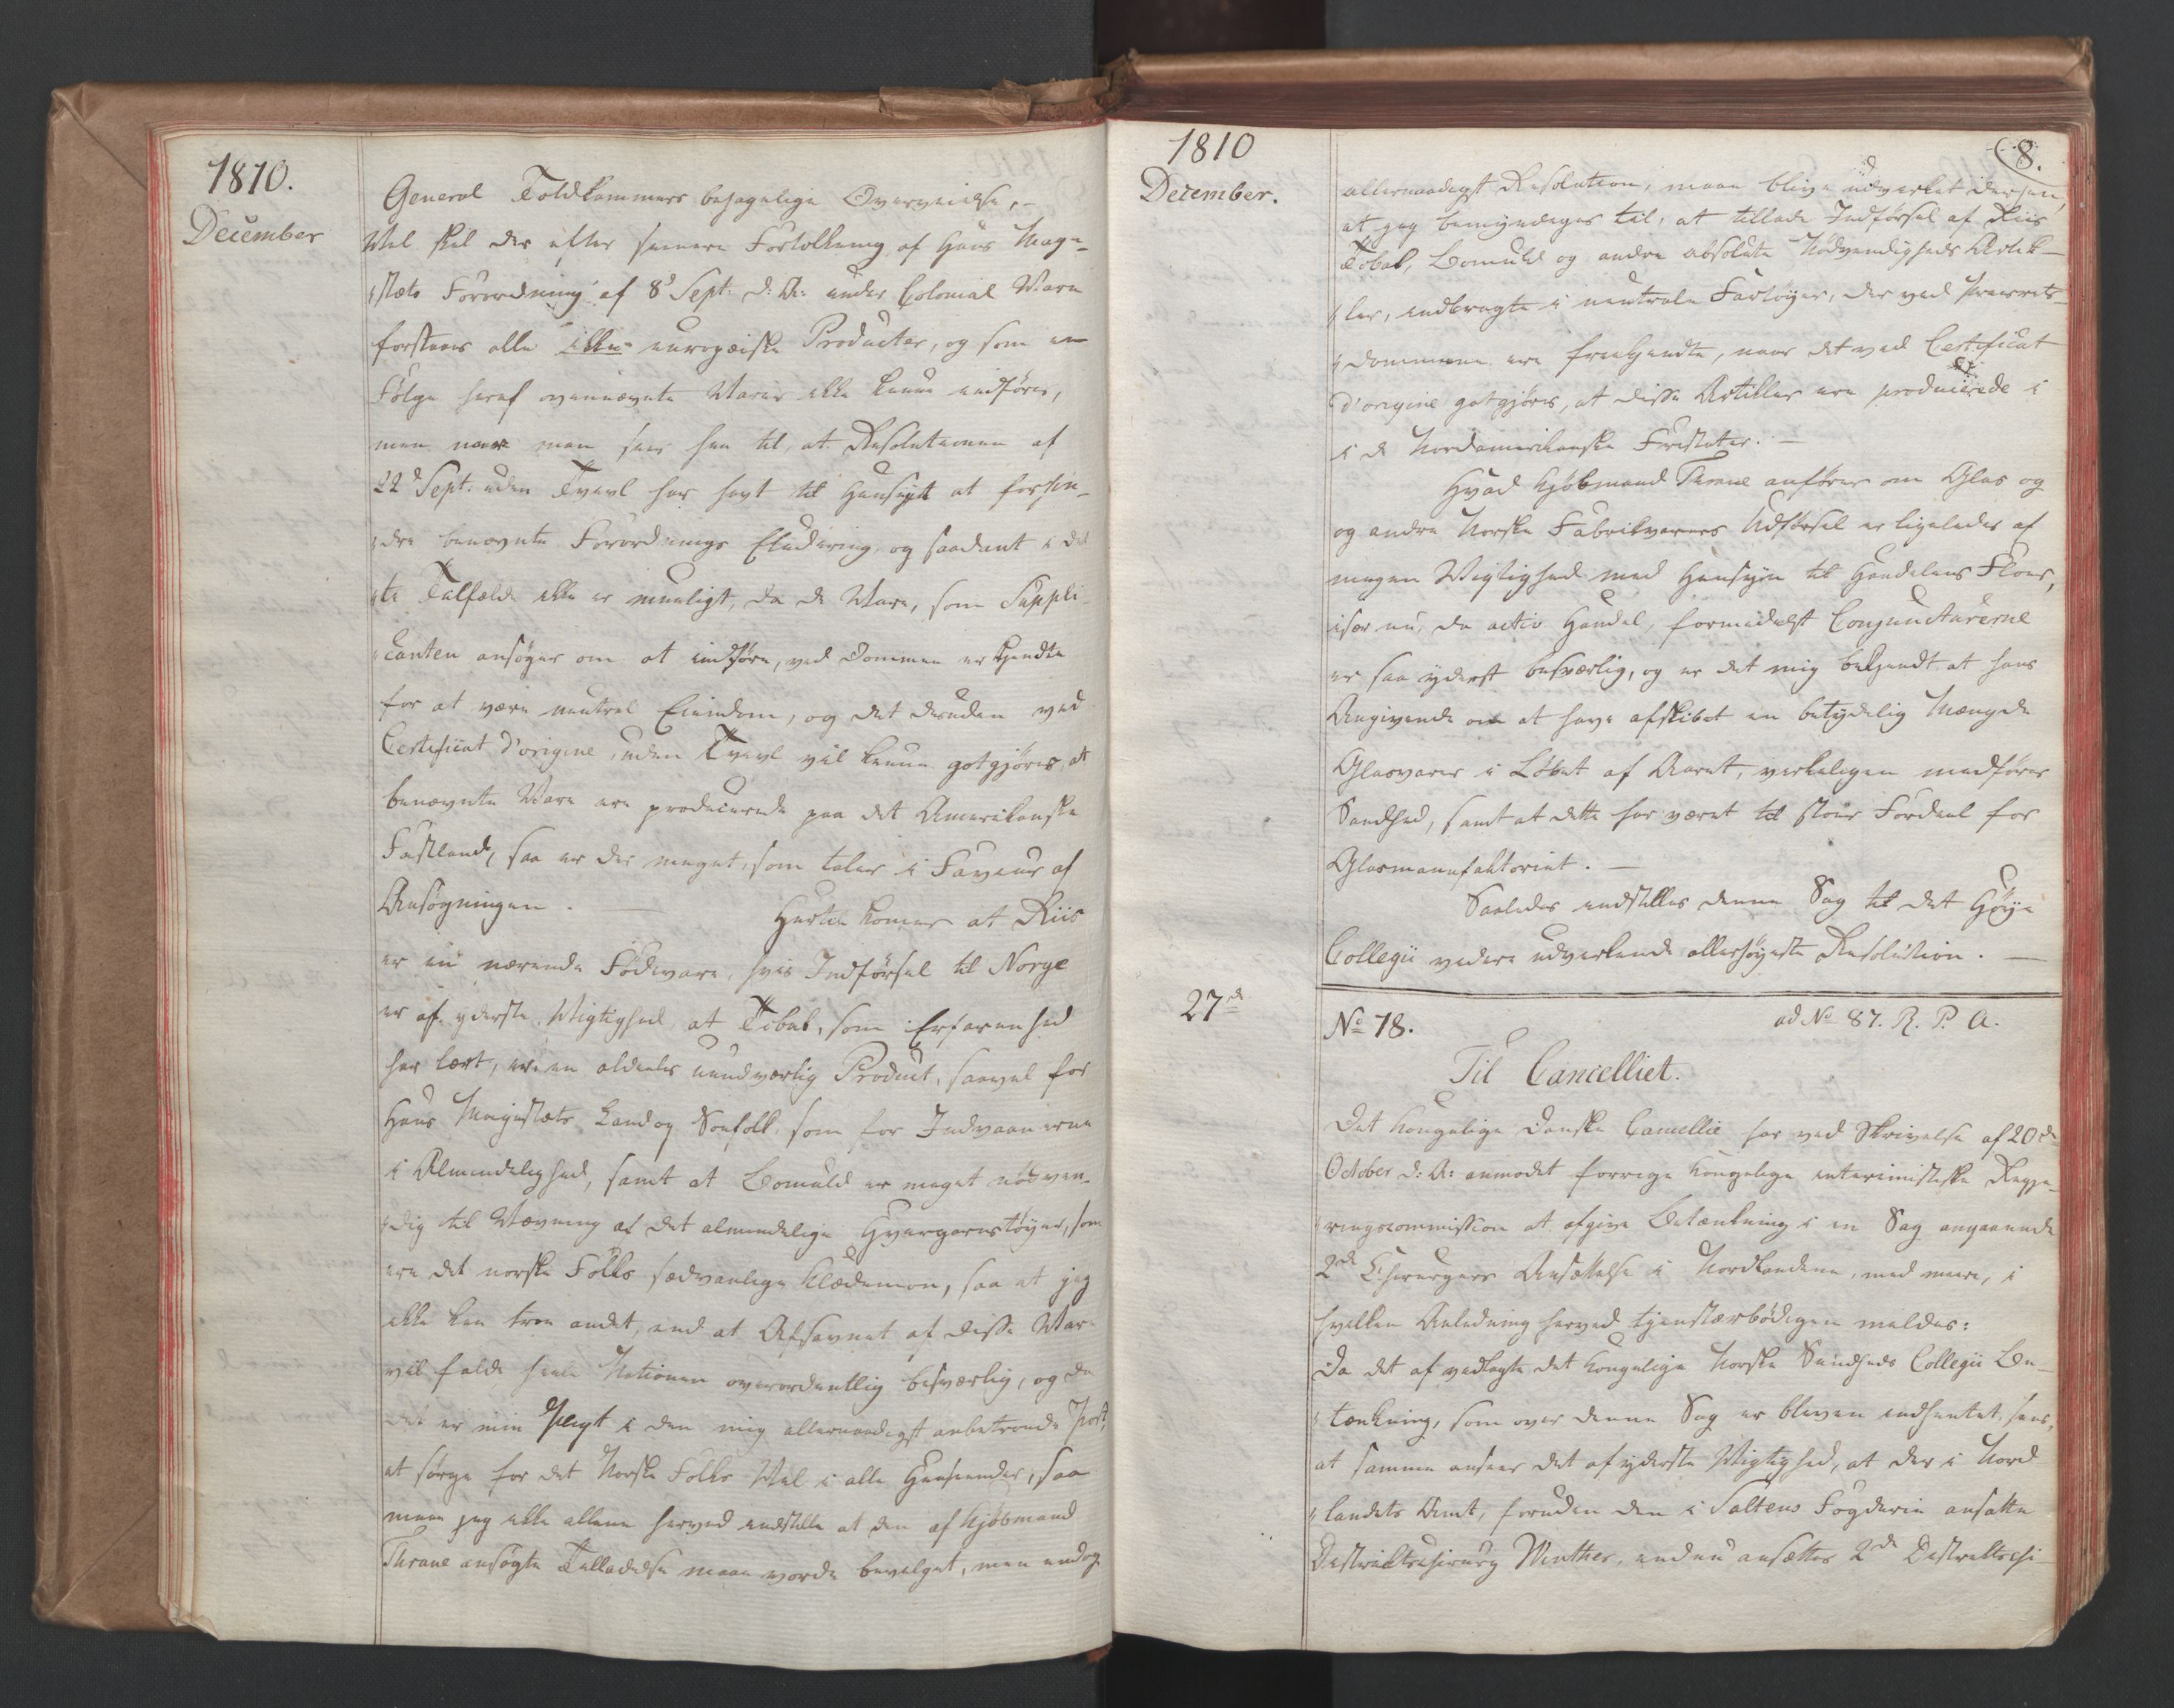 1810.
December
General Toldkammers behagelige Overveielse. –
Vel skal der efter senere Fortolkning af Hans Maje-
stæts Forordning af 8de Sept: d: A: under Colonial Vare
forstaaes alle ikke europæiske Producter, og som en
Følge heraf ovennævnte Varer ikke kunne indføres,
men naar man seer hen til, at Resolutionen af
22de Sept: uden Tvivl har havt til Hensigt at forhin-
dre benævnte Forordnings Eludering og saadant i det-
te Tilfælde ikke er mueligt, da de Vare, som Suppli-
canten ansøger om at indføre, ved Dommen er kjendte
for at være neutral Eiendom, og det desuden ved
Certificat d'origine uden Tvivl vil kunne gotgjøres at
benævnte Vare ere producerede paa det Amerikanske
Fastland, saa er der meget, som taler i Faveur af
Ansøgningen. — Hertil kommer at Riis
er en nærende Fødevare, hvis Indførsel til Norge
er af yderste Vigtighed, at Tobak, som Erfarenhed
har lært, er en aldeeles uundværlig Product, saavel for
Hans Majestæts Land og Søefolk, som for Indvaanerne
i Almindelighed, samt at Bomuld er meget nødven-
dig til Vævning af det almindelige Hvergarnstøyer, som
ere det norske Folks sædvanlige Klædemon, saa at jeg
ikke kan troe andet, end at Afsavnet af disse Vare
vil falde heele Nationen overordentlig besværlig, og da
det er min Pligt i den mig allernaadigst anbetroede Post,
at sørge for det Norske Folks Vel i alle Henseender, saa
maae jeg ikke allene herved indstille at den af Kjøbmand
Thrane ansøgte Tilladelse maae vorde bevilget, men endog
1810
December.
8.
allernaadigst Resolution, maae blive udvirket derhen,
at jeg bemyndiges til, at tillade Indførsel af Riis
Tobak, Bomuld og andre absolute Nødvendigheds Artik-
ler, indbragte i neutrale Fartøyer, der ved Priserets-
dommene ere frikjendte, naar det ved Certificat
d'origine gotgjøres, at disse Artikler ere producerede i
i de Nordamerikanske Fristater. —
Hvad Kjøbmand Thrane anfører om Glas og
og andre Norske Fabrikvarers Udførsel er ligeledes af
megen Vigtighed med Hensyn til Handelens Floer,
især nu, da activ Handel, formedelst Conjuncturerne
er saa yderst besværlig, og er det mig bekjendt at hans
Angivende om at have afskibet en betydelig Mængde
Glasvarer i Løbet af Aaret, virkeligen medfører
Sandhed, samt at dette har været til stoer Fordeel for
Glasmanufaktoriet. —
Saaledes indstilles denne Sag til det Høye
Collegii videre udvirkende allerhøyeste Resolution. —
27de
No 78.
ad No 87. R. P. A.
Til Cancelliet.
Det kongelige Danske Cancellie har ved Skrivelse af 20de
October d: A: anmodet forrige kongelige interimistiske Regje-
ringscommission at afgive Betænkning i en Sag angaaende
2de Chirurgers Ansættelse i Nordlandene, med meere, i
hvilken Anledning herved tjenstærbødigen meldes:
Da det af vedlagte det kongelige Norske Sundheds Collegii Be-
tænkning, som over denne Sag er bleven indhentet, sees,
at samme anseer det af yderste Vigtighed, at der i Nord-
landets Amt, foruden den i Saltens Fogderie ansatte
Districtschirurg Winther, endnu ansættes 2de Districtschi-